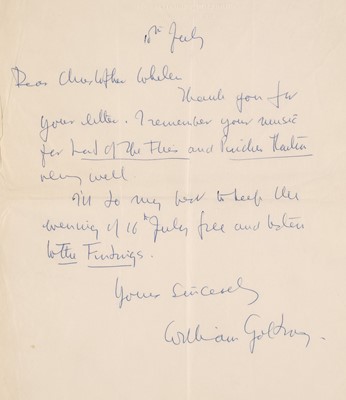 10th July
Dear Christopher Whelen
Thank you for
your letter. I remember your music
for Lord of The Flies and Pincher Martin
very well.
I'll do my best to keep the
evening of 16th July free and listen
to The Findings.
Yours Sincerely
William Golding.